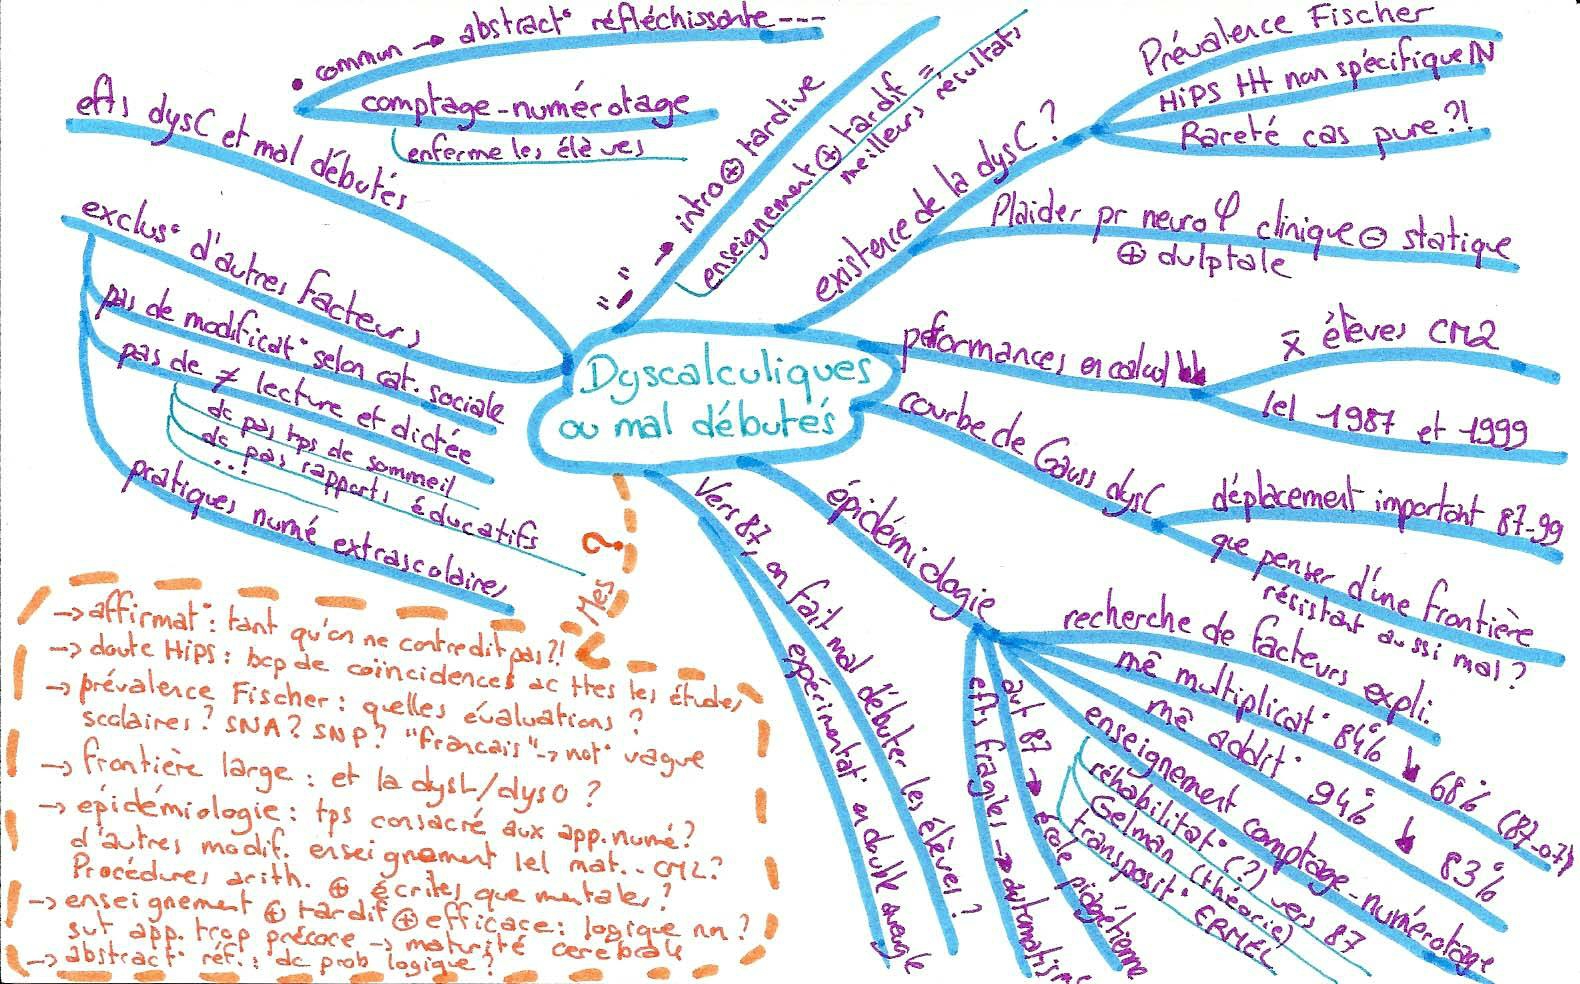 Dyscalculiques
ou mal débutés
efts dysC et mal débutés
• commun → abstract° réfléchissante ---
comptage-numérotage
enferme les élèves
exclus° d'autres facteurs
pas de modificat° selon cat. sociale
pas de ≠ lecture et dictée
dc pas tps de sommeil
dc pas rapports éducatifs
...!
pratiques numé extrascolaires
" • " → intro ⊕ tardive
enseignement ⊕ tardif =
meilleurs résultats
existence de la dysC ?
Prévalence Fischer
HiPS ttt non spécifique IN
Rareté cas pure?!
Plaider pr neuro φ clinique ⊖ statique
⊕ dvlptale
performances en calcul
x̄ élèves CM2
lel 1987 et 1999
courbe de Gauss dysC
déplacement important 87-99
que penser d'une frontière
résistant aussi mal ?
épidémiologie
recherche de facteurs expli.
mê multiplicat° 84% ↓ 68% (87-07)
mê addit° 94% ↓ 83%
enseignement comptage-numérotage
réhabilitat° (?) vers 87
Gelman (théorie)
transposit° ERMEL
avt 87 → école piagétienne
efts fragiles → automatisme
Vers 87, on fait mal débuter les élèves ?
expérimentat° en double aveugle
Mes ?
→ affirmat° : tant qu'on ne contredit pas?!
→ doute HiPS : bcp de coïncidences ac ttes les études
→ prévalence Fischer : quelles évaluations ?
scolaires ? SNA ? SNP ? "français" → not° vague
→ frontière large : et la dysL/dysO ?
→ épidémiologie : tps consacré aux app. numé ?
d'autres modif. enseignement lel mat.. CM2 ?
Procédures arith. ⊕ écrites que mentales ?
→ enseignement ⊕ tardif ⊕ efficace : logique nn ?
sut app. trop précoce → maturité cérébrale
→ abstract° réf. : dc prob logique ?